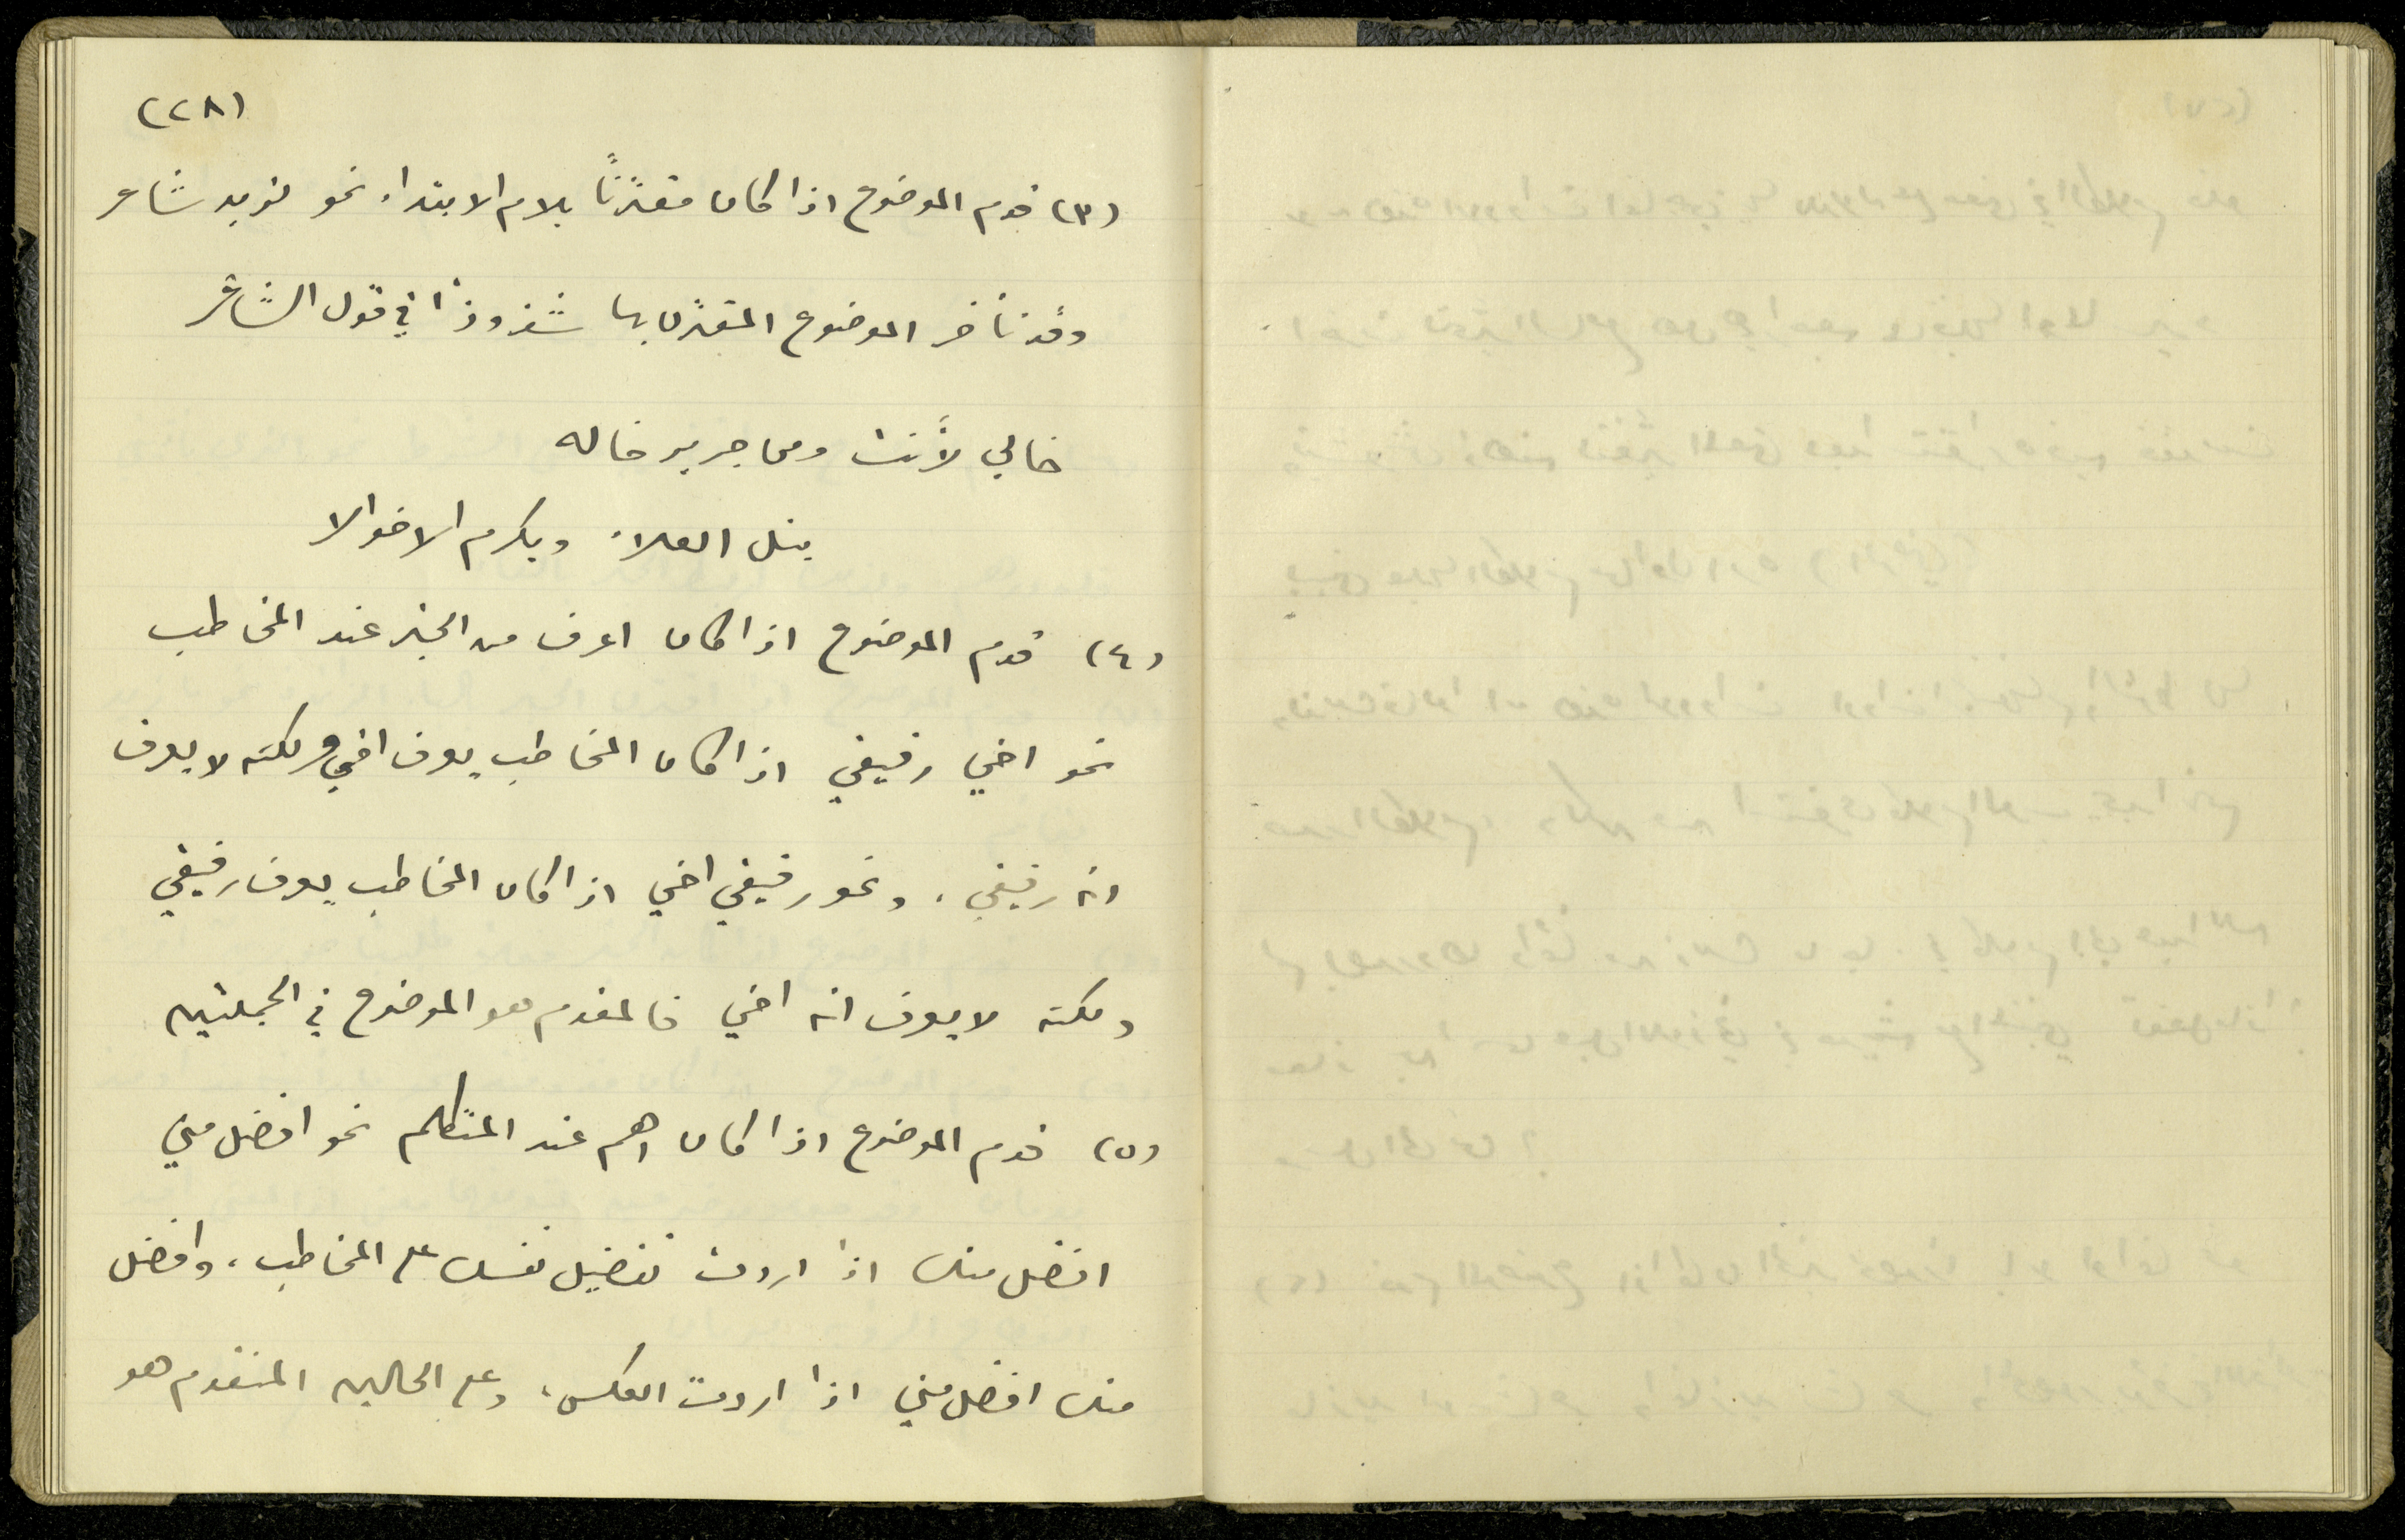 (٢٨)
(٣) قدم الموضوع اذا كان مقترنًا بلام الابتداء نحو لزيد شاعر
وقد تأخر الموضوع المقترن بها شذوذًا في قول الشاعر
خالي لأنت ومن جرير خاله
ينل العلاء ويكرم الاخوالا
(٤) قدم الموضوع اذا كان اعرف من الخبر عند المخاطب
نحو اخي رفيقي اذا كان المخاطب يعرف اخي ولكنه لا يعرف
انه رفيقي، ونحو رفيقي اخي اذا كان المخاطب يعرف رفيقي
ولكنه لا يعرف انه اخي فالمقدم هو الموضوع في الجملتين
(٥) قدم الموضوع اذا كان اهم عند المتكلم نحو افضل مني
افضل منك اذا اردت تفضيل نفسك على المخاطب، وافضل
منك افضل مني اذا اردت العكس، وعلى الحالين المتقدم هو